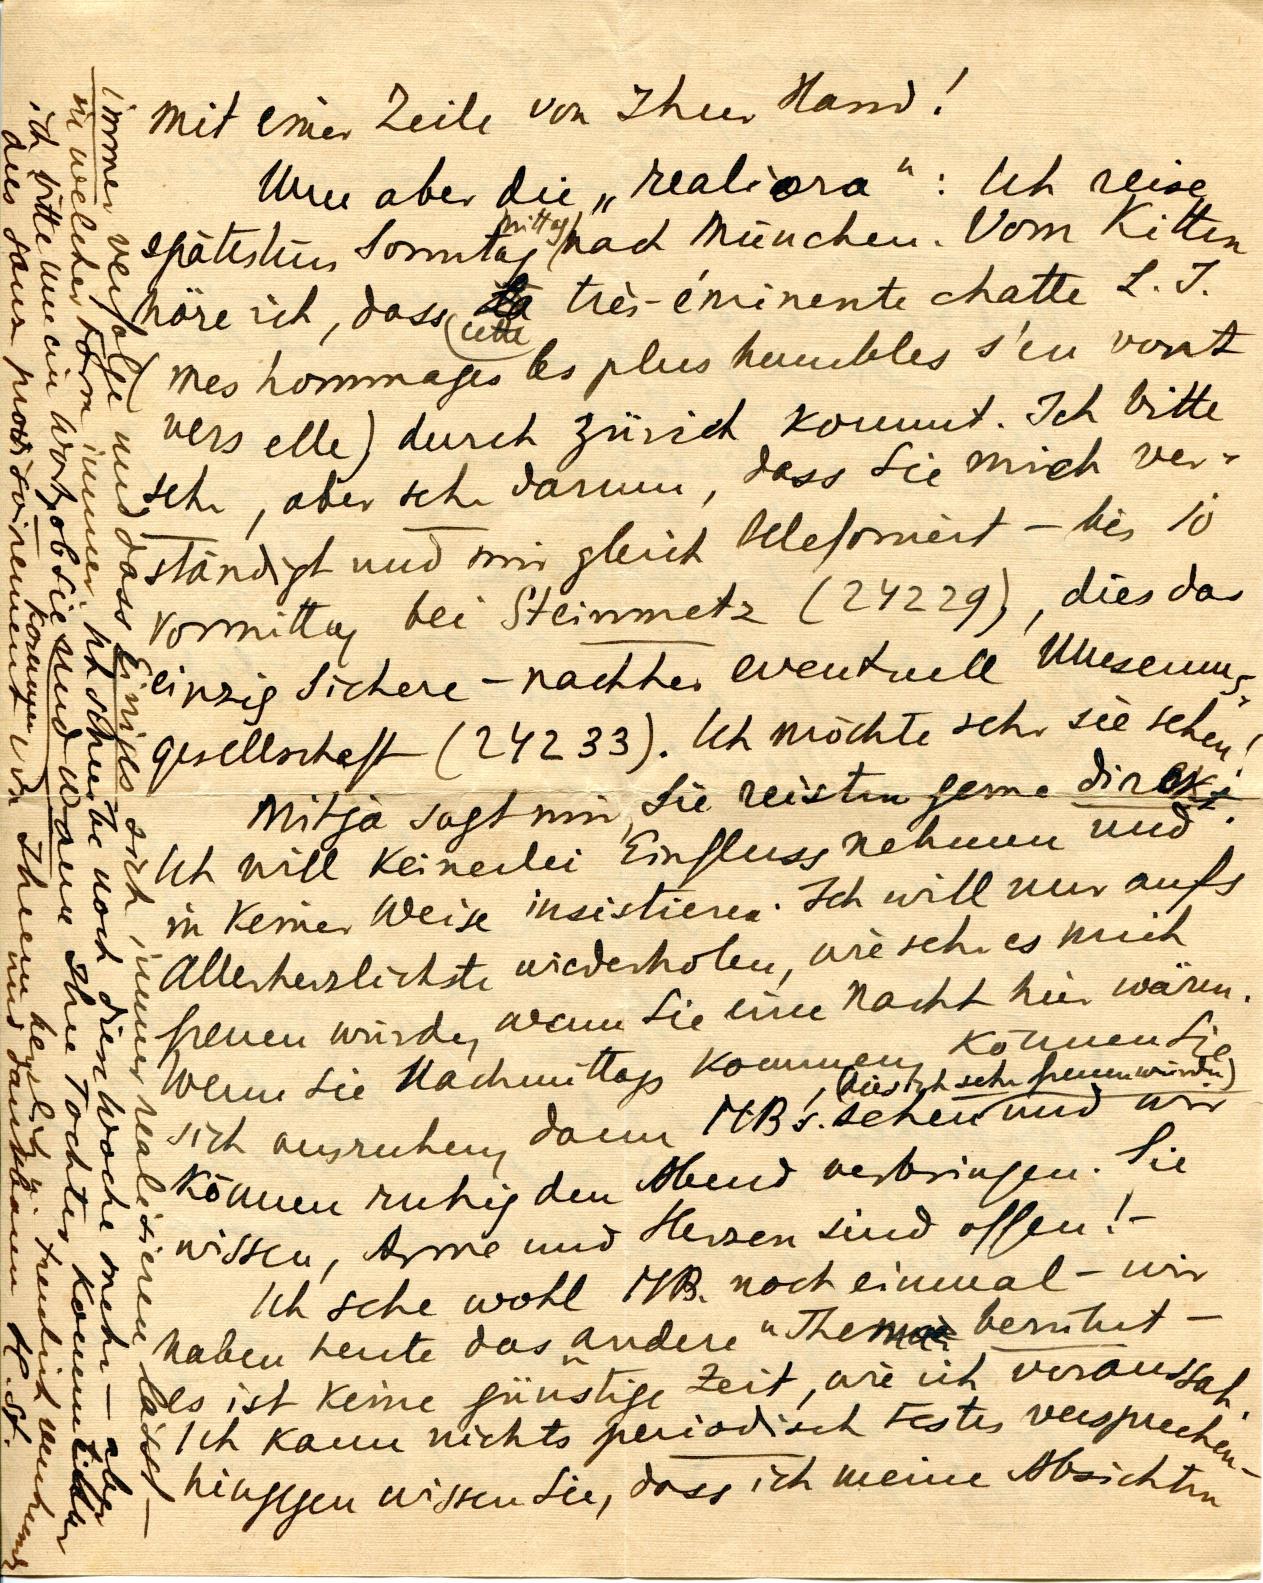 mit einer Zeile von Ihrer Hand!
Nun aber die „realiora“: Ich reise
spätestens Sonntag mittag nach München. Vom Kitten
höre ich, dass cette très-éminente chatte L. I.
(mes hommages les plus humbles s'en vont
vers elle) durch Zürich kommt. Ich bitte
sehr, aber sehr darum, dass Sie mich ver-
ständigt und mir gleich telefoniert – bis 10
vormittag bei Steinmetz (24229), dies das
einzig Sichere – nachher eventuell Museums-
gesellschaft (24233). Ich möchte sehr sie sehen!
Mitja sagt mir, Sie reisten gerne direkt.
Ich will keinerlei Einfluss nehmen und
in keiner Weise insistieren. Ich will nur aufs
Allerherzlichste wiederholen, wie sehr es mich
freuen würde, wenn Sie eine Nacht hier wären.
Wenn Sie Nachmittags kommen, können Sie
sich ausruhen, dann MB's. sehen (was ich sehr freuen würde) und wir
können ruhig den Abend verbringen. Sie
wissen, Arme und Herzen sind offen! –
Ich sehe wohl MB. noch einmal – wir
haben heute das „andere“ Thema berührt –
es ist keine günstige Zeit, wie ich voraussah.
Ich kann nichts periodisch Festes versprechen –
hingegen wissen Sie, dass ich meine Absichten
immer verfolge und dass Einiges sich immer realisieren lässt –
in welcher Form immer. Ich schreibe noch diese Woche mehr – aber
ich bitte um ein Wort, ob Sie kommen und wann Ihre Tochter kommt
dies sans provisoirement von Ihrem herzlich u. treulich
und dankbaren H. St.